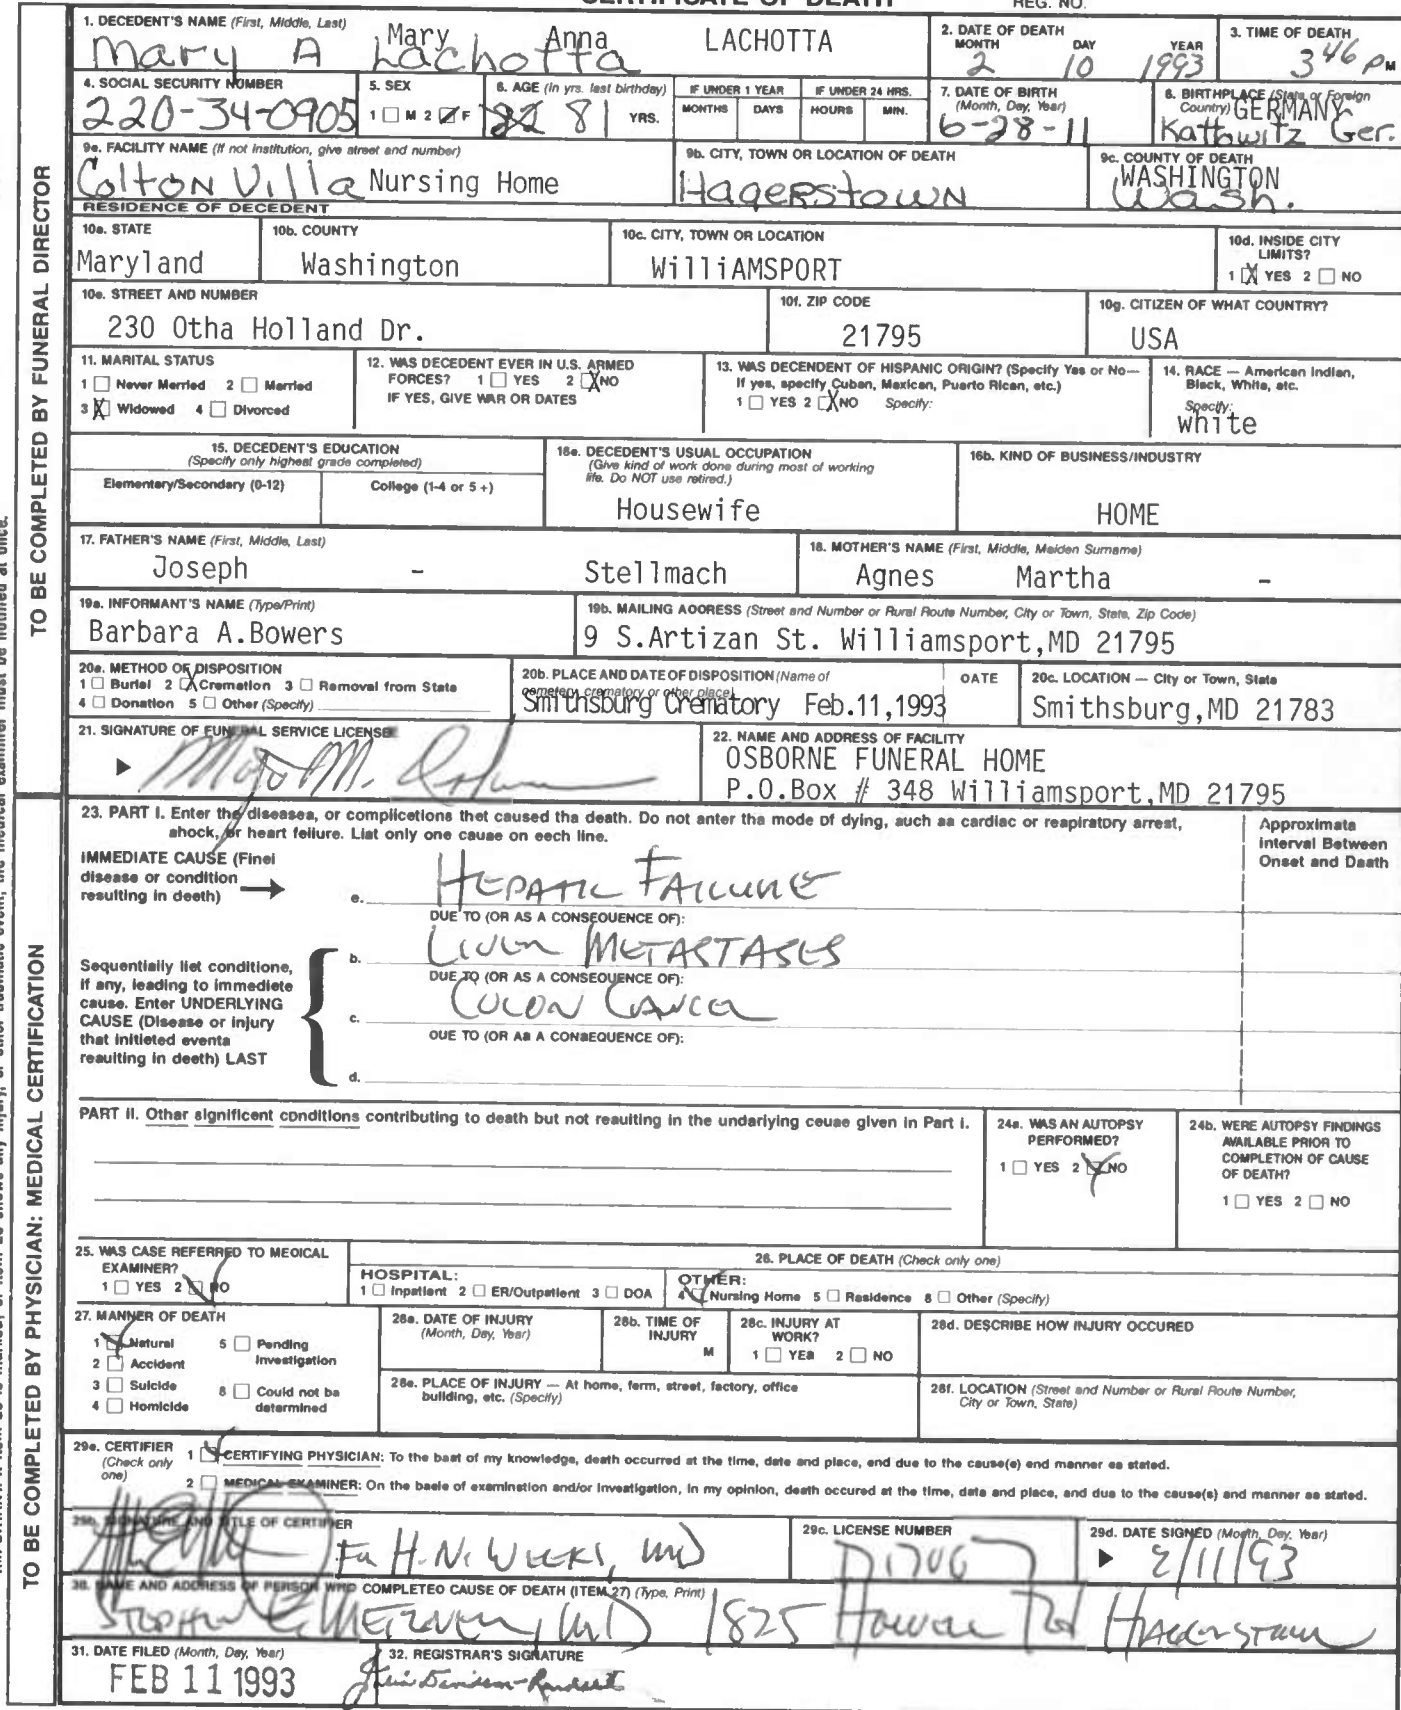 CERTIFICATE OF DEATH REG. NO.
1. DECEDENT'S NAME (First, Middle, Last)
Mary Anna LACHOTTA
Mary A Lachotta
2. DATE OF DEATH
MONTH DAY YEAR
2 10 1993
3. TIME OF DEATH
3 46 PM
4. SOCIAL SECURITY NUMBER
220-34-0905
5. SEX
1 M 2 F
6. AGE (In yrs. last birthday)
81 YRS.
IF UNDER 1 YEAR
MONTHS DAYS
IF UNDER 24 HRS.
HOURS MIN.
7. DATE OF BIRTH
(Month, Day, Year)
6-28-11
8. BIRTHPLACE (State or Foreign
Country) GERMANY
Kattowitz Ger.
9a. FACILITY NAME (If not institution, give street and number)
Colton Villa Nursing Home
9b. CITY, TOWN OR LOCATION OF DEATH
Hagerstown
9c. COUNTY OF DEATH
WASHINGTON
Wash.
RESIDENCE OF DECEDENT
10a. STATE
Maryland
10b. COUNTY
Washington
10c. CITY, TOWN OR LOCATION
WilliAMSPORT
10d. INSIDE CITY
LIMITS?
1 X YES 2 NO
10e. STREET AND NUMBER
230 Otha Holland Dr.
10f. ZIP CODE
21795
10g. CITIZEN OF WHAT COUNTRY?
USA
11. MARITAL STATUS
1 Never Married 2 Married
3 X Widowed 4 Divorced
12. WAS DECEDENT EVER IN U.S. ARMED
FORCES? 1 YES 2 X NO
IF YES, GIVE WAR OR DATES
13. WAS DECENDENT OF HISPANIC ORIGIN? (Specify Yes or No—
If yes, specify Cuban, Mexican, Puerto Rican, etc.)
1 YES 2 X NO Specify:
14. RACE — American Indian,
Black, White, etc.
Specify:
white
15. DECEDENT'S EDUCATION
(Specify only highest grade completed)
Elementary/Secondary (0-12) College (1-4 or 5 +)
16a. DECEDENT'S USUAL OCCUPATION
(Give kind of work done during most of working
life. Do NOT use retired.)
Housewife
16b. KIND OF BUSINESS/INDUSTRY
HOME
17. FATHER'S NAME (First, Middle, Last)
Joseph - Stellmach
18. MOTHER'S NAME (First, Middle, Maiden Surname)
Agnes Martha -
19a. INFORMANT'S NAME (Type/Print)
Barbara A.Bowers
19b. MAILING ADDRESS (Street and Number or Rural Route Number, City or Town, State, Zip Code)
9 S.Artizan St. Williamsport,MD 21795
20a. METHOD OF DISPOSITION
1 Burial 2 X Cremation 3 Removal from State
4 Donation 5 Other (Specify)
20b. PLACE AND DATE OF DISPOSITION (Name of
cemetery, crematory or other place) DATE
Smithsburg Crematory Feb.11,1993
20c. LOCATION — City or Town, State
Smithsburg,MD 21783
21. SIGNATURE OF FUNERAL SERVICE LICENSEE
22. NAME AND ADDRESS OF FACILITY
OSBORNE FUNERAL HOME
P.O.Box # 348 Williamsport,MD 21795
23. PART I. Enter the diseases, or complications that caused the death. Do not enter the mode of dying, such as cardiac or respiratory arrest,
shock, or heart failure. List only one cause on each line.
Approximate
Interval Between
Onset and Death
IMMEDIATE CAUSE (Final
disease or condition
resulting in death)
a. HEPATIC FAILURE
DUE TO (OR AS A CONSEQUENCE OF):
b. LIVER METASTASES
DUE TO (OR AS A CONSEQUENCE OF):
c. COLON CANCER
DUE TO (OR AS A CONSEQUENCE OF):
d.
Sequentially list conditions,
if any, leading to immediate
cause. Enter UNDERLYING
CAUSE (Disease or injury
that initiated events
resulting in death) LAST
PART II. Other significant conditions contributing to death but not resulting in the underlying cause given in Part I.
24a. WAS AN AUTOPSY
PERFORMED?
1 YES 2 NO
24b. WERE AUTOPSY FINDINGS
AVAILABLE PRIOR TO
COMPLETION OF CAUSE
OF DEATH?
1 YES 2 NO
25. WAS CASE REFERRED TO MEDICAL
EXAMINER?
1 YES 2 NO
26. PLACE OF DEATH (Check only one)
HOSPITAL:
1 Inpatient 2 ER/Outpatient 3 DOA
OTHER:
4 Nursing Home 5 Residence 6 Other (Specify)
27. MANNER OF DEATH
1 Natural 5 Pending
Investigation
2 Accident
3 Suicide 8 Could not be
determined
4 Homicide
28a. DATE OF INJURY
(Month, Day, Year)
28b. TIME OF
INJURY
M
28c. INJURY AT
WORK?
1 YES 2 NO
28d. DESCRIBE HOW INJURY OCCURED
28e. PLACE OF INJURY — At home, farm, street, factory, office
building, etc. (Specify)
28f. LOCATION (Street and Number or Rural Route Number,
City or Town, State)
29a. CERTIFIER
(Check only
one)
1 CERTIFYING PHYSICIAN: To the best of my knowledge, death occurred at the time, date and place, and due to the cause(s) and manner as stated.
2 MEDICAL EXAMINER: On the basis of examination and/or investigation, in my opinion, death occured at the time, date and place, and due to the cause(s) and manner as stated.
29b. SIGNATURE AND TITLE OF CERTIFIER
H.N. WEEKS, MD
29c. LICENSE NUMBER
29d. DATE SIGNED (Month, Day, Year)
2/11/93
30. NAME AND ADDRESS OF PERSON WHO COMPLETED CAUSE OF DEATH (ITEM 27) (Type, Print)
STEPHEN E. METZNER, MD 1825 Howell Rd HAGERSTOWN
31. DATE FILED (Month, Day, Year)
FEB 11 1993
32. REGISTRAR'S SIGNATURE
TO BE COMPLETED BY FUNERAL DIRECTOR
TO BE COMPLETED BY PHYSICIAN: MEDICAL CERTIFICATION